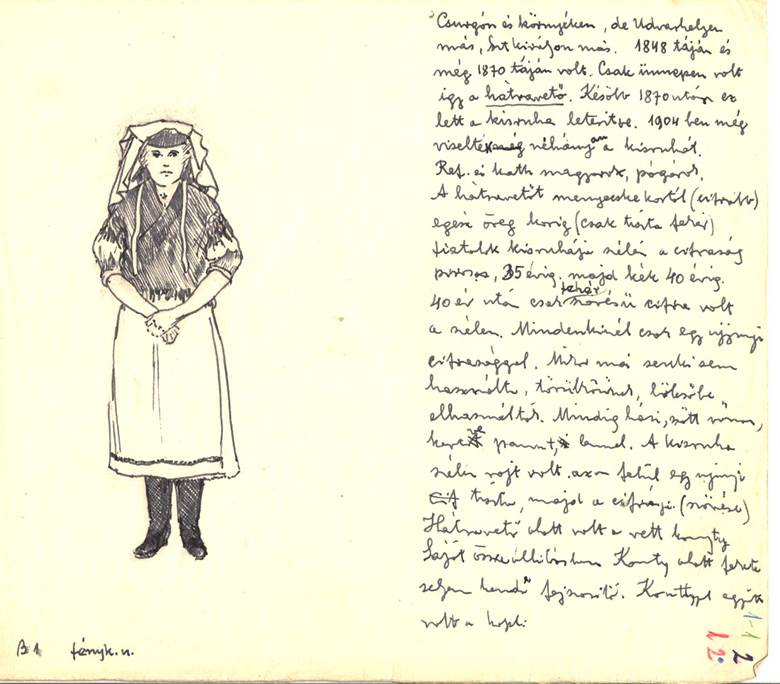 Csurgón és környékén, de Udvarhelyen
más, Szt királyon más. 1848 táján és
még 1870 táján volt. Csak ünnepen volt
így a hátravető. Később 1870 után ez
lett a kisruha leterítve. 1904 ben még
viselték néhányan a kisruhát.
Ref. és kath magyarok, pógárok.
A hátravetőt menyecske kortól (cifrább)
egész öreg korig (csak tiszta fehér)
fiatalok kisruhája szélén a cifraság
piros, 35 évig, majd kék 40 évig.
40 év után csak fehér szövésű cifra volt
a szélén. Mindenkinél csak egy ujjnyi
cifrasággal. Mikor már senki sem
használta, törülközőnek, bölcsőbe
elhasználták. Mindig házi, szőtt
pamut, lennel. A kisruha
szélén rojt volt. azon felül egy ujjnyi
tiszta, majd a cifrája. (szövése)
Hátravető alatt volt a vett konty
Saját összeállításban Konty alatt fekete
selyem kendő fejszorító. Konttyal együtt
volt a
B1 fényk. n.
1-1
1 2
2